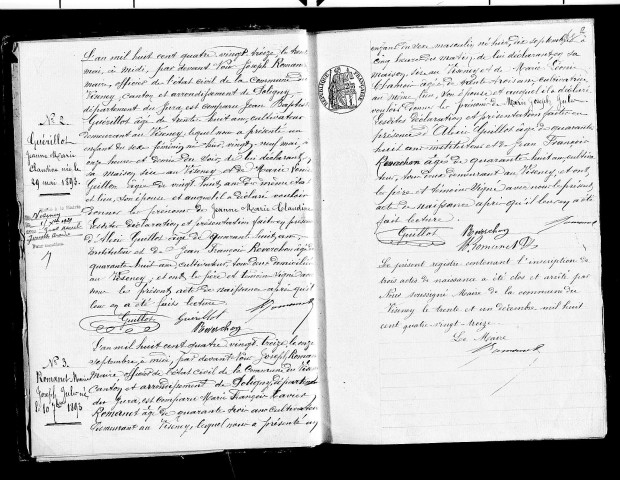 L'an mil huit cent quatre vingt treize le trente
mai, à midi, par devant Nous Joseph Roma
maire, officier de l'état civil de la Commune de
Viseney, canton et arrondissement de Poligny
département du Jura est comparu Jean Baptiste
Guérillot âgé de trente huit ans, cultivateur
demeurant au Viseney, lequel nous a présenté un
enfant du sexe féminin né hier, vingt neuf mai, à
onze heures et demie du soir, de lui déclarant,
sa maison, sise au Viseney et de Marie
Guillon âgée de vingt huit ans de même état
et lieu, son épouse et auquel il a déclaré vouloir
donner le prénom de Jeanne Marie Claudine
Lesdites déclaration et présentation faites en présence
d'Alexis Guillot âgé de quarante huit ans,
instituteur et de Jean François Reverchon âgé de
quarante huit ans cultivateur, tous deux domiciliés
au Viseney, et ont, le père et témoins signé avec
nous le présent acte de naissance après qu'il
leur en a été fait lecture
Guillot Guérillot Romanet
Reverchon
N° 2
Guérillot
Jeanne Marie
Claudine née le
29 mai 1893.
L'an mil huit cent quatre vingt treize, le onze
septembre, à midi, par devant Nous Joseph Roma
maire officier de l'état civil de la Commune du
Canton et arrondissement de Poligny, département
du Jura, est comparu Marie François Xavier
Romanet âgé de quarante trois ans cultivateur
demeurant au Viseney, lequel nous a présenté un
N° 3.
Romanet Marie
Joseph Jules né
le 10 7bre 1893
2
REPUBLIQUE FRANÇAISE
enfant du sexe masculin, né hier, dix septembre à
cinq heures du matin, de lui déclarant en sa
maison, sise au Viseney et de Marie
âgée de trente trois ans, cultivatrice,
au même lieu son épouse et auquel il a déclaré
vouloir donner le prénom de Marie Joseph Jules
Lesdites déclaration et présentation faites en
présence d'Alexis Guillot âgé de quarante
huit ans instituteur et de Jean François
Reverchon âgé de quarante huit ans, cultiva
teur, tous deux demeurant au Viseney, et ont
le père et témoins signé avec nous le présent
acte de naissance après qu'il leur en a été
fait lecture.
Guillot Reverchon Romanet
Romanet
Le présent registre contenant l'inscription de
trois actes de naissance a été clos et arrêté par
Nous soussigné Maire de la commune du
Viseney le trente et un décembre mil huit
cent quatre vingt treize
Le Maire
Romanet